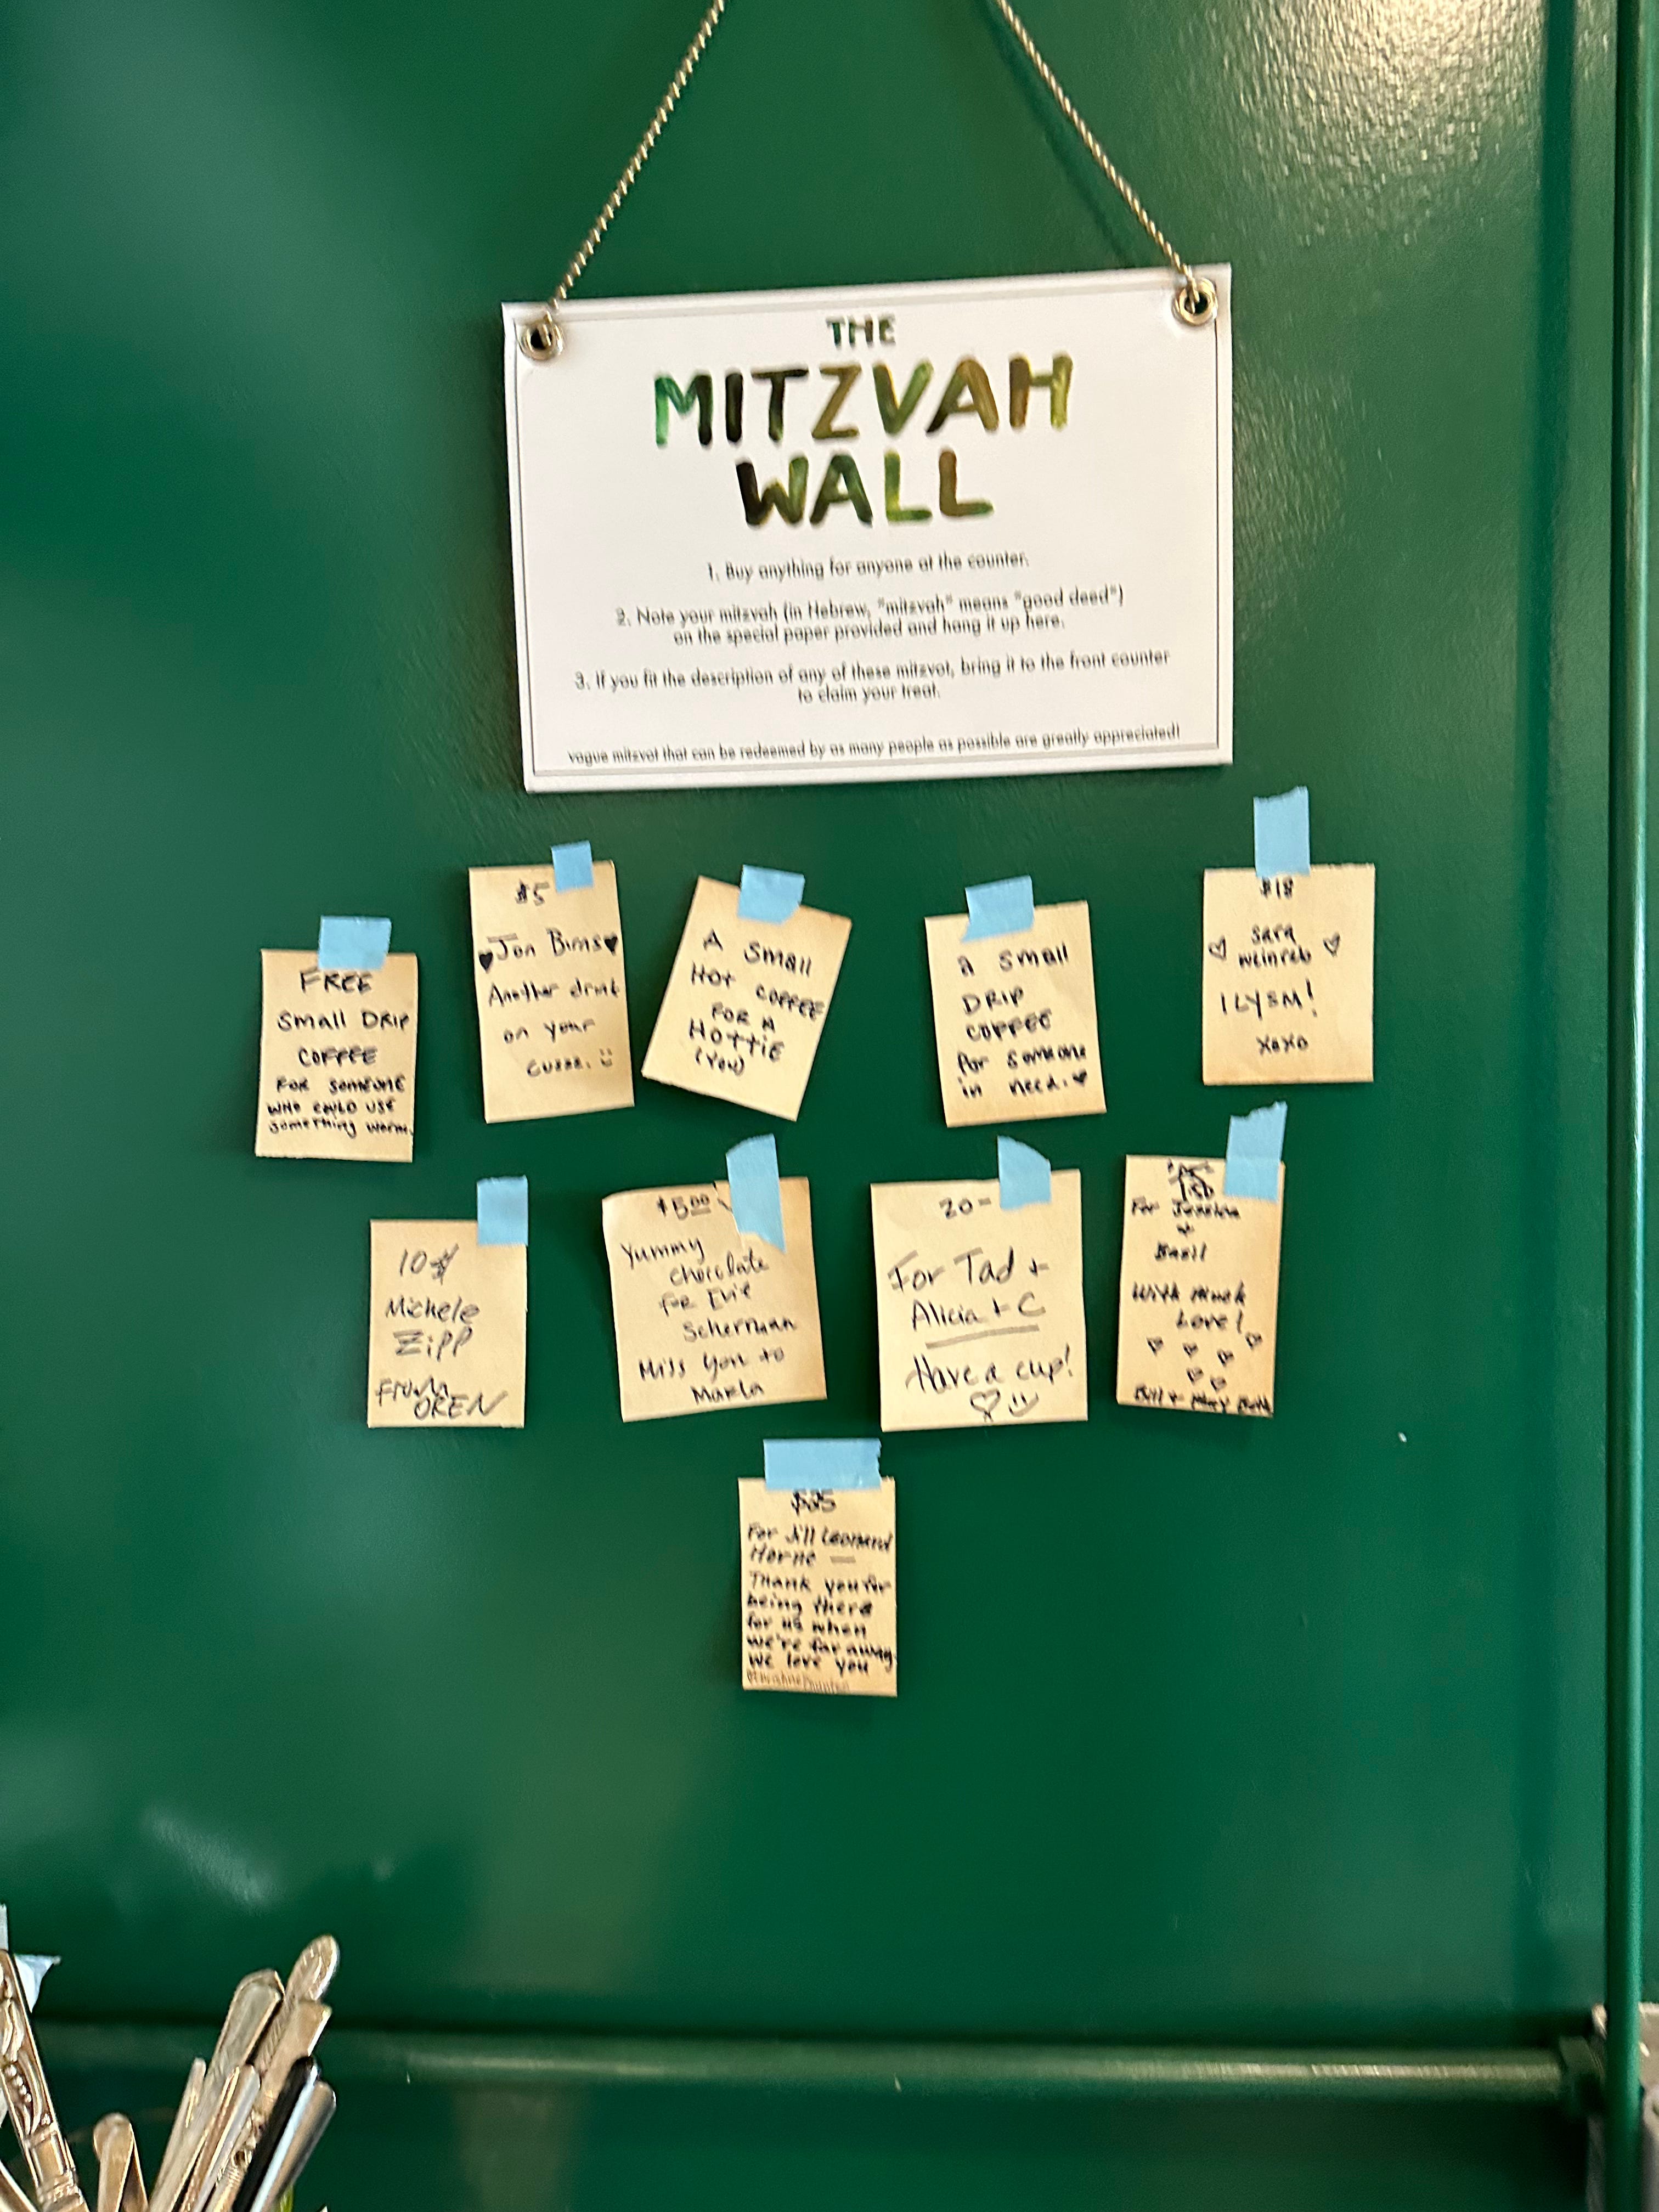 THE
MITZVAH
WALL
1. Buy anything for anyone at the counter.
2. Note your mitzvah (in Hebrew, "mitzvah" means "good deed")
on the special paper provided and hang it up here.
3. If you fit the description of any of these mitzvot, bring it to the front counter
to claim your treat.
vague mitzvot that can be redeemed by as many people as possible are greatly appreciated!
FREE
Small DRIP
COFFEE
FOR SOMEONE
WHO COULD USE
something warm.
$5
Jon
Another drink
on your
A Small
HOT COFFEE
FOR A
HOTTIE
(You)
a small
DRIP
COFFEE
for someone
in need.
$18
sara
weinreb
ILYSM!
xoxo
10$
Michele
ZIPP
FROM
OREN
$5.00
Yummy
chocolate
FOR Evie
Scherman
Miss you to
Marla
20-
For Tad +
Alicia + C
Have a cup!
For Jessica
+
Basil
With Much
Love!
Bill + Mary Beth
$25
For Jill Leonard
Horne —
Thank you for
being there
for us when
we're far away.
We love you